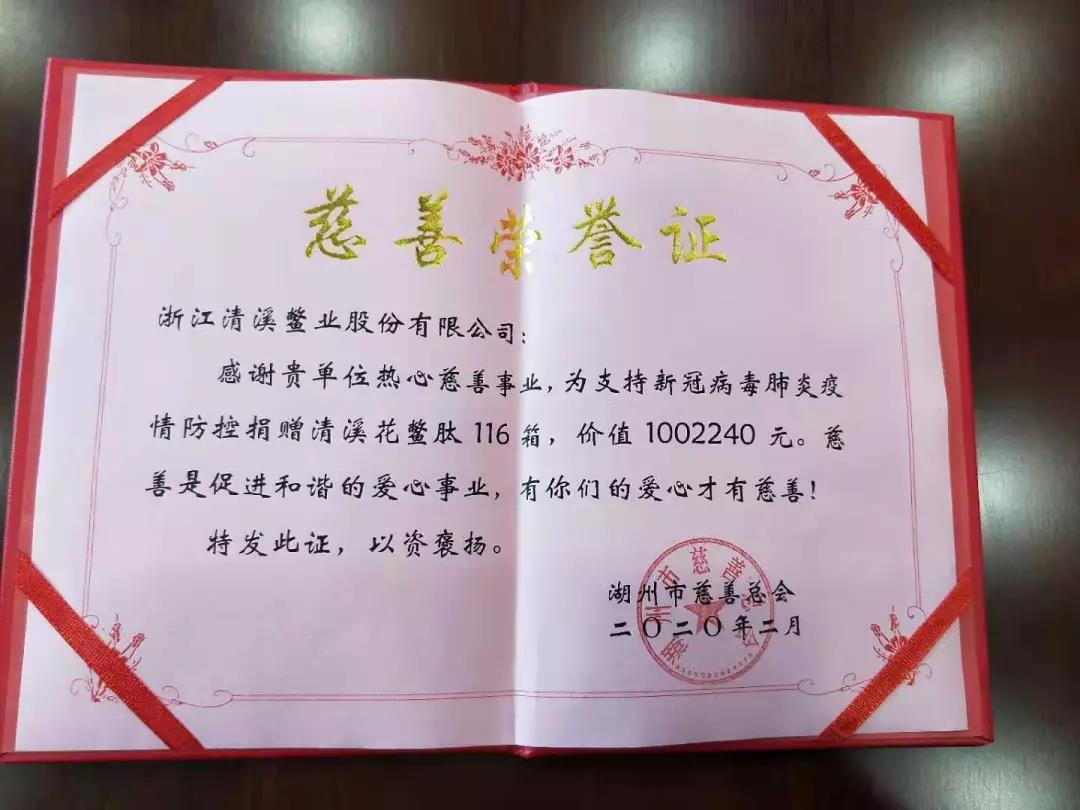 慈善荣誉证
浙江清溪鳖业股份有限公司：
感谢贵单位热心慈善事业，为支持新冠病毒肺炎疫
情防控捐赠清溪花鳖肽 116 箱，价值 1002240 元。慈
善是促进和谐的爱心事业，有你们的爱心才有慈善！
特发此证，以资褒扬。
湖州市慈善总会
二〇二〇年二月
湖州市慈善总会